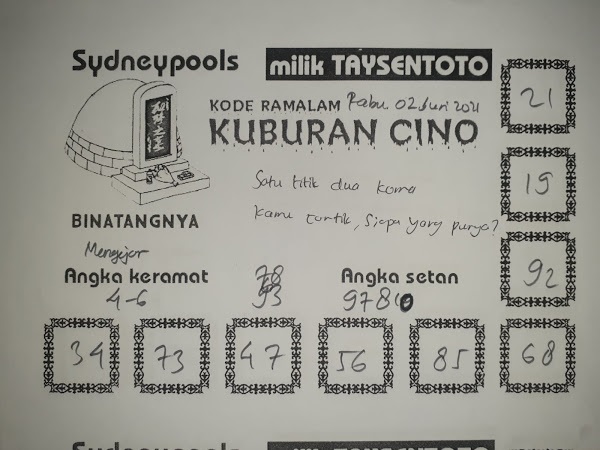 Sydneypools
milik TAYSENTOTO
KODE RAMALAM Rabu 02 Juni 2021
KUBURAN CINO
21
Satu titik dua koma
19
Kamu cantik, siapa yang punya?
BINATANGNYA
Mengejar
92
Angka keramat
78
Angka setan
4-6
93
97810
34
73
47
56
85
68
Sydneypools
milik TAYSENTOTO